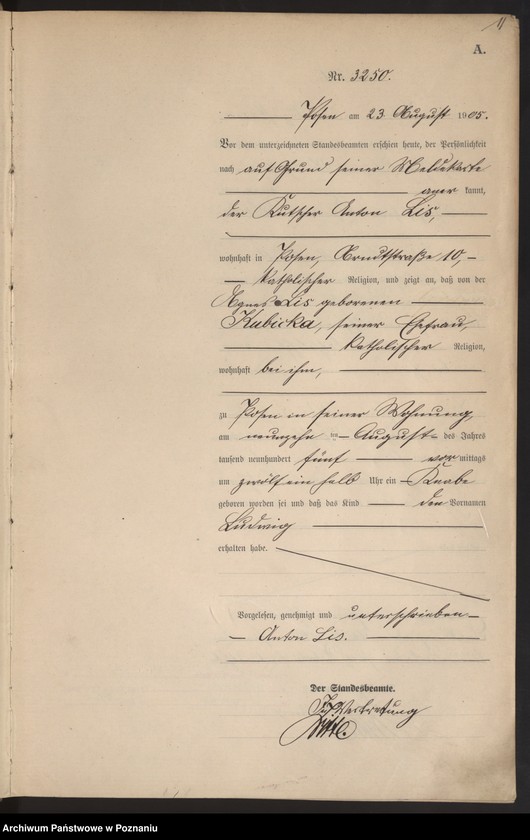 11
A.
Nr. 3250.
Posen am 23 August 1905.
Vor dem unterzeichneten Standesbeamten erschien heute, der Persönlichkeit
nach auf Grund seiner Meldekarte
kannt,
der Kutscher Anton Lis,
wohnhaft in Posen, Arndtstraße 10,
katholischer Religion, und zeigt an, daß von der
Agnes Lis geborenen
Kubicka, seiner Ehefrau,
katholischer Religion,
wohnhaft bei ihm,
zu Posen in seiner Wohnung,
am neunzehnten August des Jahres
tausend neunhundert fünf vormittags
um zwölf ein halb Uhr ein Knabe
geboren worden sei und daß das Kind den Vornamen
Ludwig
erhalten habe.
Vorgelesen, genehmigt und unterschrieben
Anton Lis.
Der Standesbeamte.
In Vertretung
Archiwum Państwowe w Poznaniu